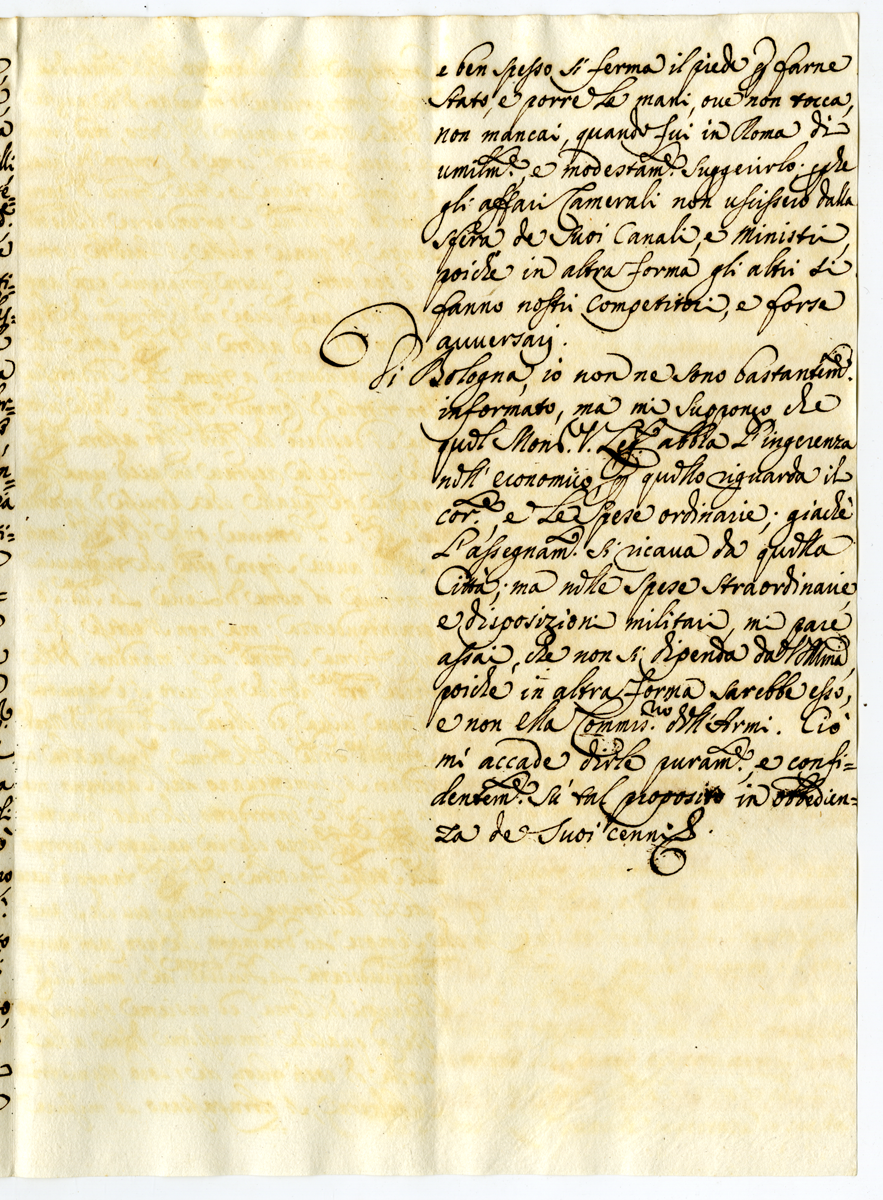 e ben spesso si ferma il piede p farne
stato, e porre le mani, oue non tocca,
non mancai, quando fui in Roma di
umilm.e, e modestam.e suggerirlo; pche
gli affari Camerali non uscissero dalla
sfera de Suoi Canali, e Ministri,
poiche in altra forma gli altri si
fanno nostri Competitori, e forse
auuersarij.
Di Bologna, io non ne sono bastantem.e
informato, ma mi suppongo che
quel Mons. V. Leg. abbia l'ingerenza
nell'economico, p quello riguarda il
cor.e, e le spese ordinarie; giachè
l'assegnam. si ricaua da quella
Città; ma nelle spese straordinarie
e disposizioni militari, mi pare
assai, che non si dipenda da
poiche in altra forma sarebbe esso,
e non ella Commis.rio dell'Armi. Ciò
mi accade dirle puram.e, e confi=
dentem.e sù tal proposito in obbedien=
za de Suoi cenni